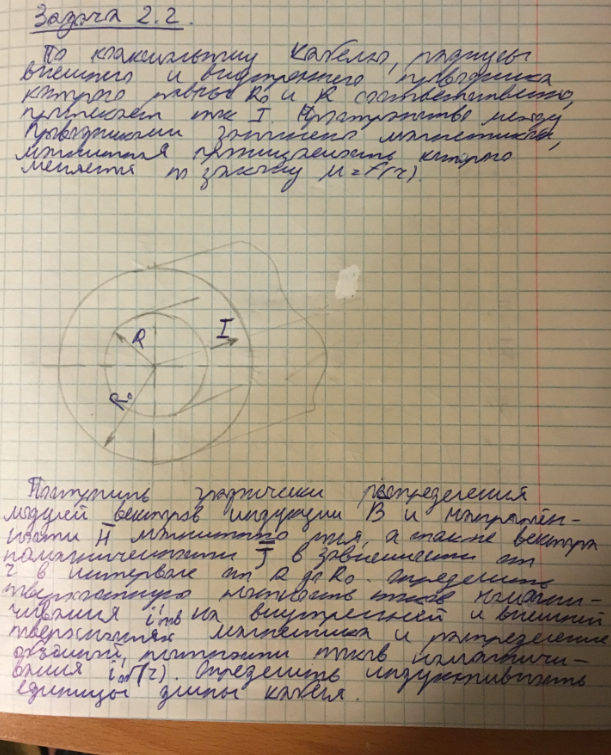 Задача 2.2.
По коаксиальному кабелю, радиусы
внешнего и внутреннего проводника
которого равны R₀ и R соответственно,
протекает ток I. Пространство между
проводниками заполнено магнетиком,
магнитная проницаемость которого
меняется по закону μ = f(r).
R
I
R₀
Построить графически распределения
модулей векторов индукции B и напряжен-
ности H магнитного поля, а также вектора
намагниченности J в зависимости от
r в интервале от R до R₀. Определить
поверхностную плотность токов намагни-
чивания i'пов на внутренней и внешней
поверхностях магнетика и распределение
объемной плотности токов намагничи-
вания i'об(r). Определить индуктивность
единицы длины кабеля.